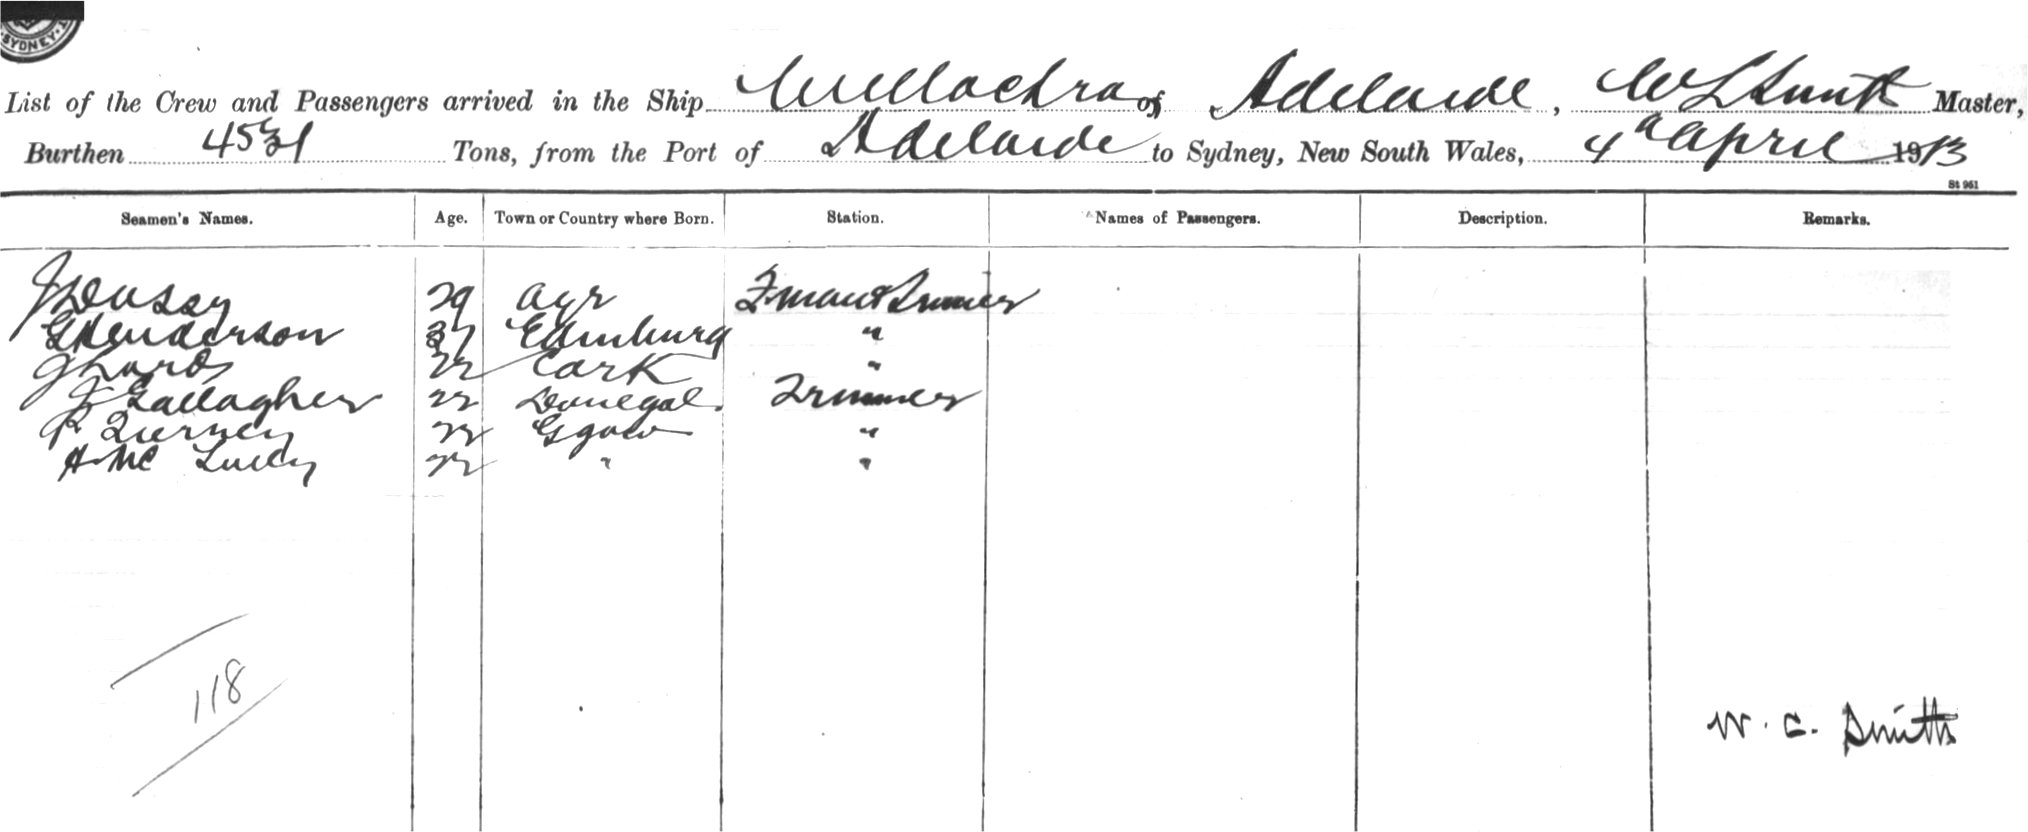 SYDNEY
List of the Crew and Passengers arrived in the Ship Willochra of Adelaide, W Smith Master,
Burthen Tons, from the Port of Adelaide to Sydney, New South Wales, 4th April 1913
St 961
Seamen's Names. Age. Town or Country where Born. Station. Names of Passengers. Description. Remarks.
29 Ayr
G Henderson 37 Edinburg "
22 Cork "
J Gallagher 22 Donegal Trimmer
P Tierney 22 Ggow "
A Mc 22 " "
118
W. C. Smith